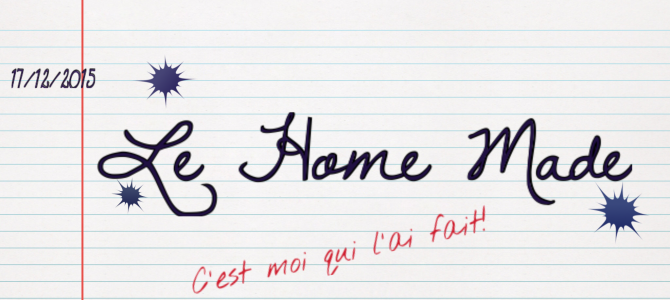 17/12/2015
Le Home Made
C'est moi qui l'ai fait!